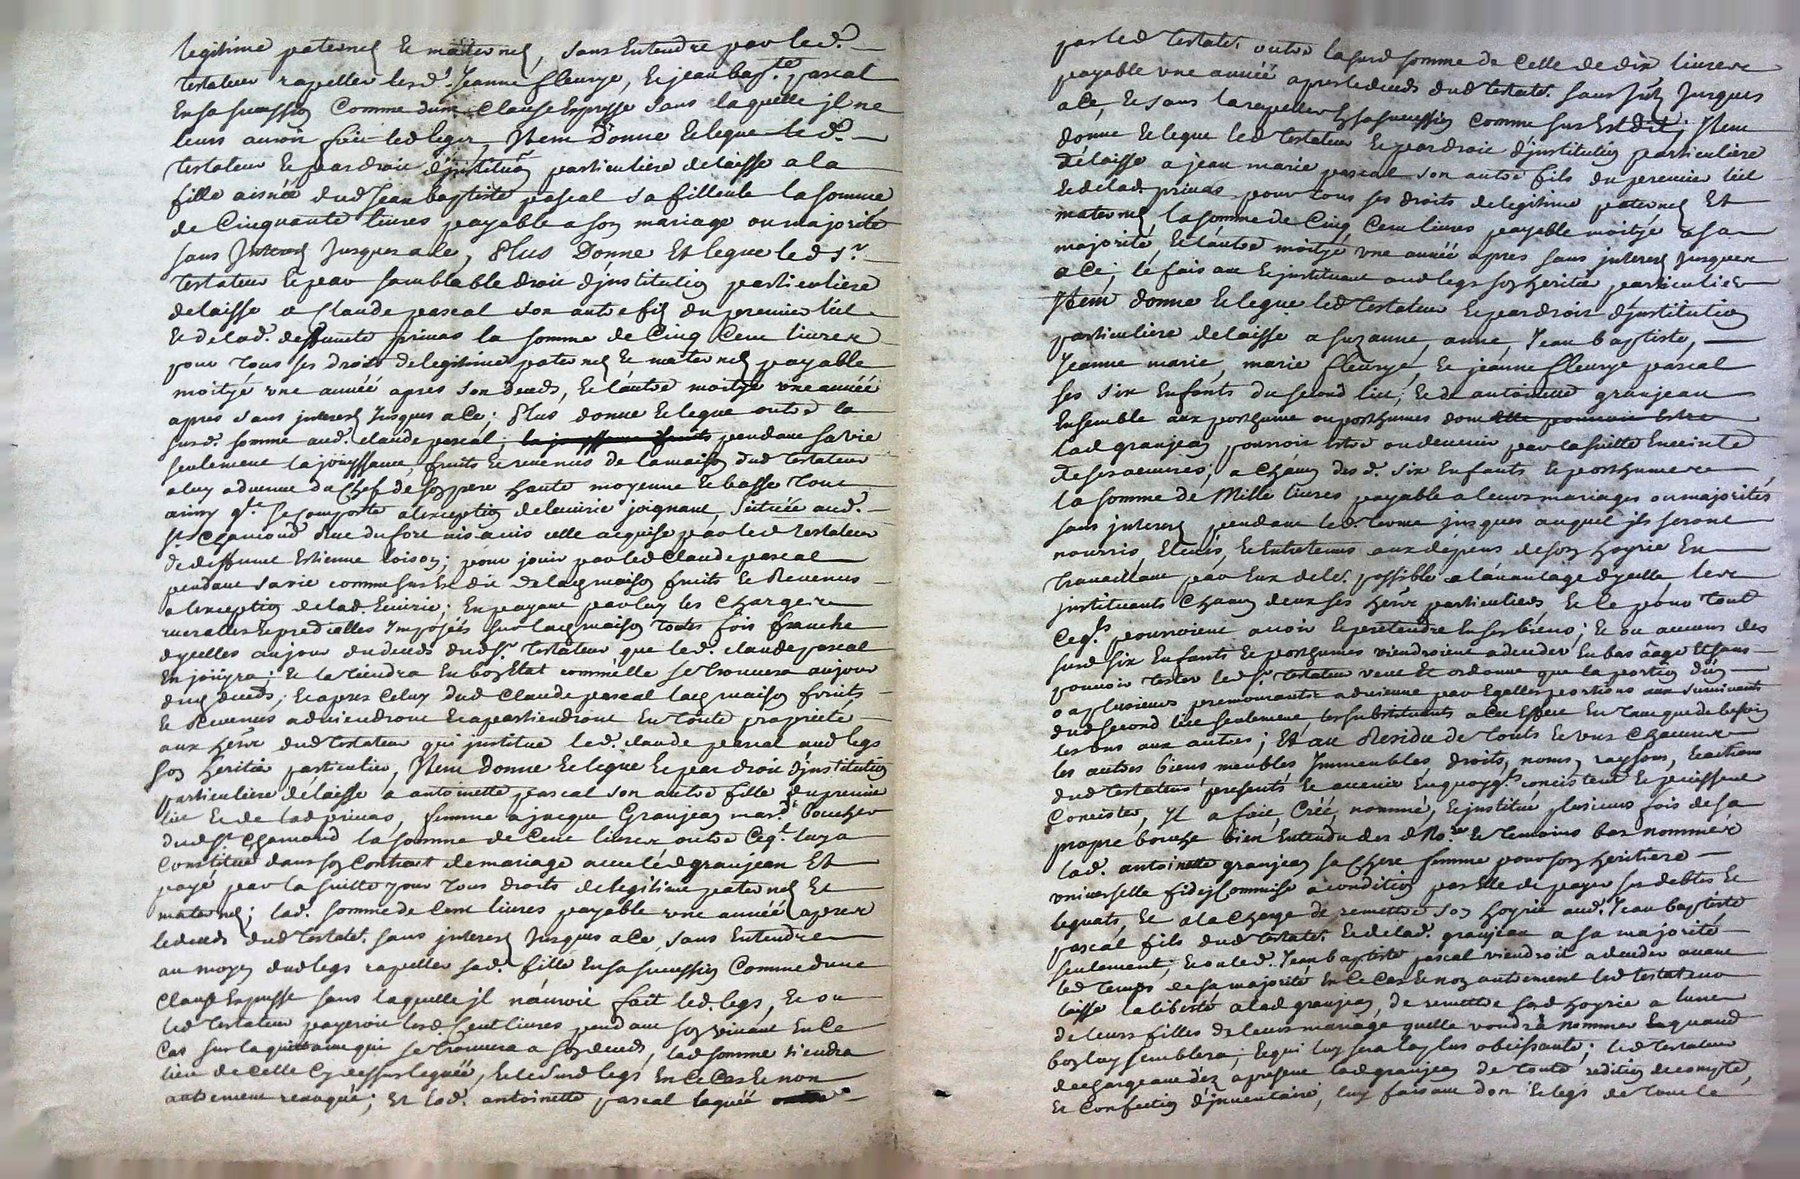 legitime paternel et maternel, sans entendre par led.
testateur rapeller lesd. Jeanne fleurye, et jean bap.te pascal
en sa succession comme d'une clause expresse sans laquelle jl ne
leurs auroit fait led legs, Jtem Donne et legue led.
testateur et par droit d'jnstitution particuliere delaisse a la
fille aisnée dud Jean baptiste pascal sa filleule la somme
de Cinquante livres payable a son mariage ou majorité
sans Jnterest Jusques a ce, Plus Donne Et legue led sr.
testateur et par semblable droit d'jnstitution particuliere
delaisse a Claude pascal son autre fils du premier lict
et de lad. deffunte primas la somme de Cinq Cent livres
pour tous ses droits de legitime paternel et maternel payable
moityé une année apres son deceds, et l'autre moityé une année
apres sans jnterest Jusques a ce; Plus donne et legue outre la
susd. somme aud. claude pascal, pendant sa vie
seulement la jouissance, fruits et revenus de la maison dud testateur
a luy advenue du chef de son pere haute moyenne et basse tout
ainsy q.le se comporte a l'exception de l'ecuirie joignant, scituée aud.
st chamond Rue du fort vis a vis celle acquise par led testateur
de deffunct Estienne Loison; pour jouir par led Claude pascal
pendant sa vie comme sus Est dit de lad maison fruits et Revenus
a l'exception de lad. Ecuirie; En payant par luy les charges
ruralles et predialles Jmposés sur lad maison toutes fois franche
d'ycelles au jour du deceds dud sr. testateur que led. claude pascal
En jouyra; et la tiendra En bon Etat comm'elle se trouvera au jour
dud deceds; et apres Celuy dud Claude pascal lad maison fruits
et Revenus adviendront et apartiendront en toute proprieté
aux hers. dud testateur qui jnstitue led. claude pascal aud legs
son heritier particulier, Jtem Donne et legue et par droit d'jnstitution
particuliere delaisse a antoinette pascal son autre fille du premier
lict et de lad primas, femme a jacque Granjean mard. boucher
dud st. Chamond la somme de Cent livres outre Ceq. luy a
Constitué dans son Contract de mariage avec led granjean Et
payé par la suitte pour tous droits de legitime paternel et
maternel; lad. somme de Cent livres payable une année apres
le deceds dud testat. sans jnterest Jusques a ce, sans Entendre
au moyen dud legs rapeller sad. fille En sa succession Comme d'une
clause Expresse sans laquelle jl n'auroit fait led. legs, et ou
led testateur payeroit lesd. Cent livres pendant son vivant En Ce
Cas sur la quittance qui se trouvera a son deceds, lad somme tiendra
lieu de celle Cy dessus leguée, et le susd legs En ce Cas et non
autrement revoqué; et lad. antoinette pascal leguée
par led testat. outre la susd somme de Celle de dix livres
payable une année apres le deceds dud testat. sans jnt. Jusques
a ce, et sans la rapeller En sa succession comme sus Est dit; Jtem
donne et legue led testateur et par droit d'jnstitution particuliere
delaisse a jean marie pascal son autre fils du premier lict
et de lad. primas pour tous ses droits de legitime paternel Et
maternel la somme de Cinq Cent livres payable moityé a sa
majorité, et l'autre moityé une année apres sans jnterest Jusques
a Ce; le faisant et jnstituant aud legs son heritier particulier
Jtem donne et legue led testateur et par droit d'jnstitution
particuliere delaisse a suzanne, anne, Jean baptiste,
Jeanne marie, marie fleurye, et jeanne fleurye pascal
ses six Enfants du second lict, et de antoinette granjean
Ensemble aux posthume ou posthumes dont elle pourroit estre
lad granjean pourroit Estre ou devenir par la suitte Enceinte
de ses oeuvres; a Chacun desd. six Enfants et posthumes
la somme de Mille livres payable a leurs mariages ou majorités
sans jnterest pendant led terme jusques auquel jls seront
nourris, Elevés, et Entretenus aux depens de son hoyrie En
travaillant par Eux de le. possible a l'avantage d'ycelle les
jnstituants Chacun d'eux ses hers. particuliers, et Ce pour tout
Ceq.ls pourroient avoir et pretendre En ses biens; et ou aucuns des
susd six Enfants et posthumes viendroient a deceder En bas aage Et sans
pouvoir tester led sr. testateur veut Et ordonne que la portion d'un
ou plusieurs premourants advienne par Egalles portions aux survivants
dud second lict seulement les substituants a Cet Effect En tant que de besoin
les uns aux autres; Et au Residu de touts et uns Chacuns
les autres biens meubles Jmmeubles, droits, noms, raysons, et actions
dud testateur presents et avenir En quoyq.ls concistent et puissent
Concister, Jl a fait, Créé, nommé, et jnstitué plusieurs fois de sa
propre bouche bien Entendu desd No.res et temoins bas nommés
lad. antoinette granjean sa Chere femme pour son heritiere
universelle fideycommise a condition par Elle de payer ses debtes et
leguats, et a la Charge de remettre son hoyrie aud. Jean baptiste
pascal fils dud testat. et de lad. granjean a sa majorité
seulement; et ou led. Jean baptiste pascal viendroit a deceder avant
led temps de sa majorité En Ce Cas et non autrement led testateur
laisse la liberté a lad granjean, de remettre sad hoyrie a l'une
de leurs filles de leurs mariage quelle voudra nommer et quand
bon luy semblera, et qui luy sera la plus obeissante; led testateur
dechargeant dez a present lad granjean de toute reddition de compte,
Et Confection d'jnventaire, luy faisant don et legs de tout le